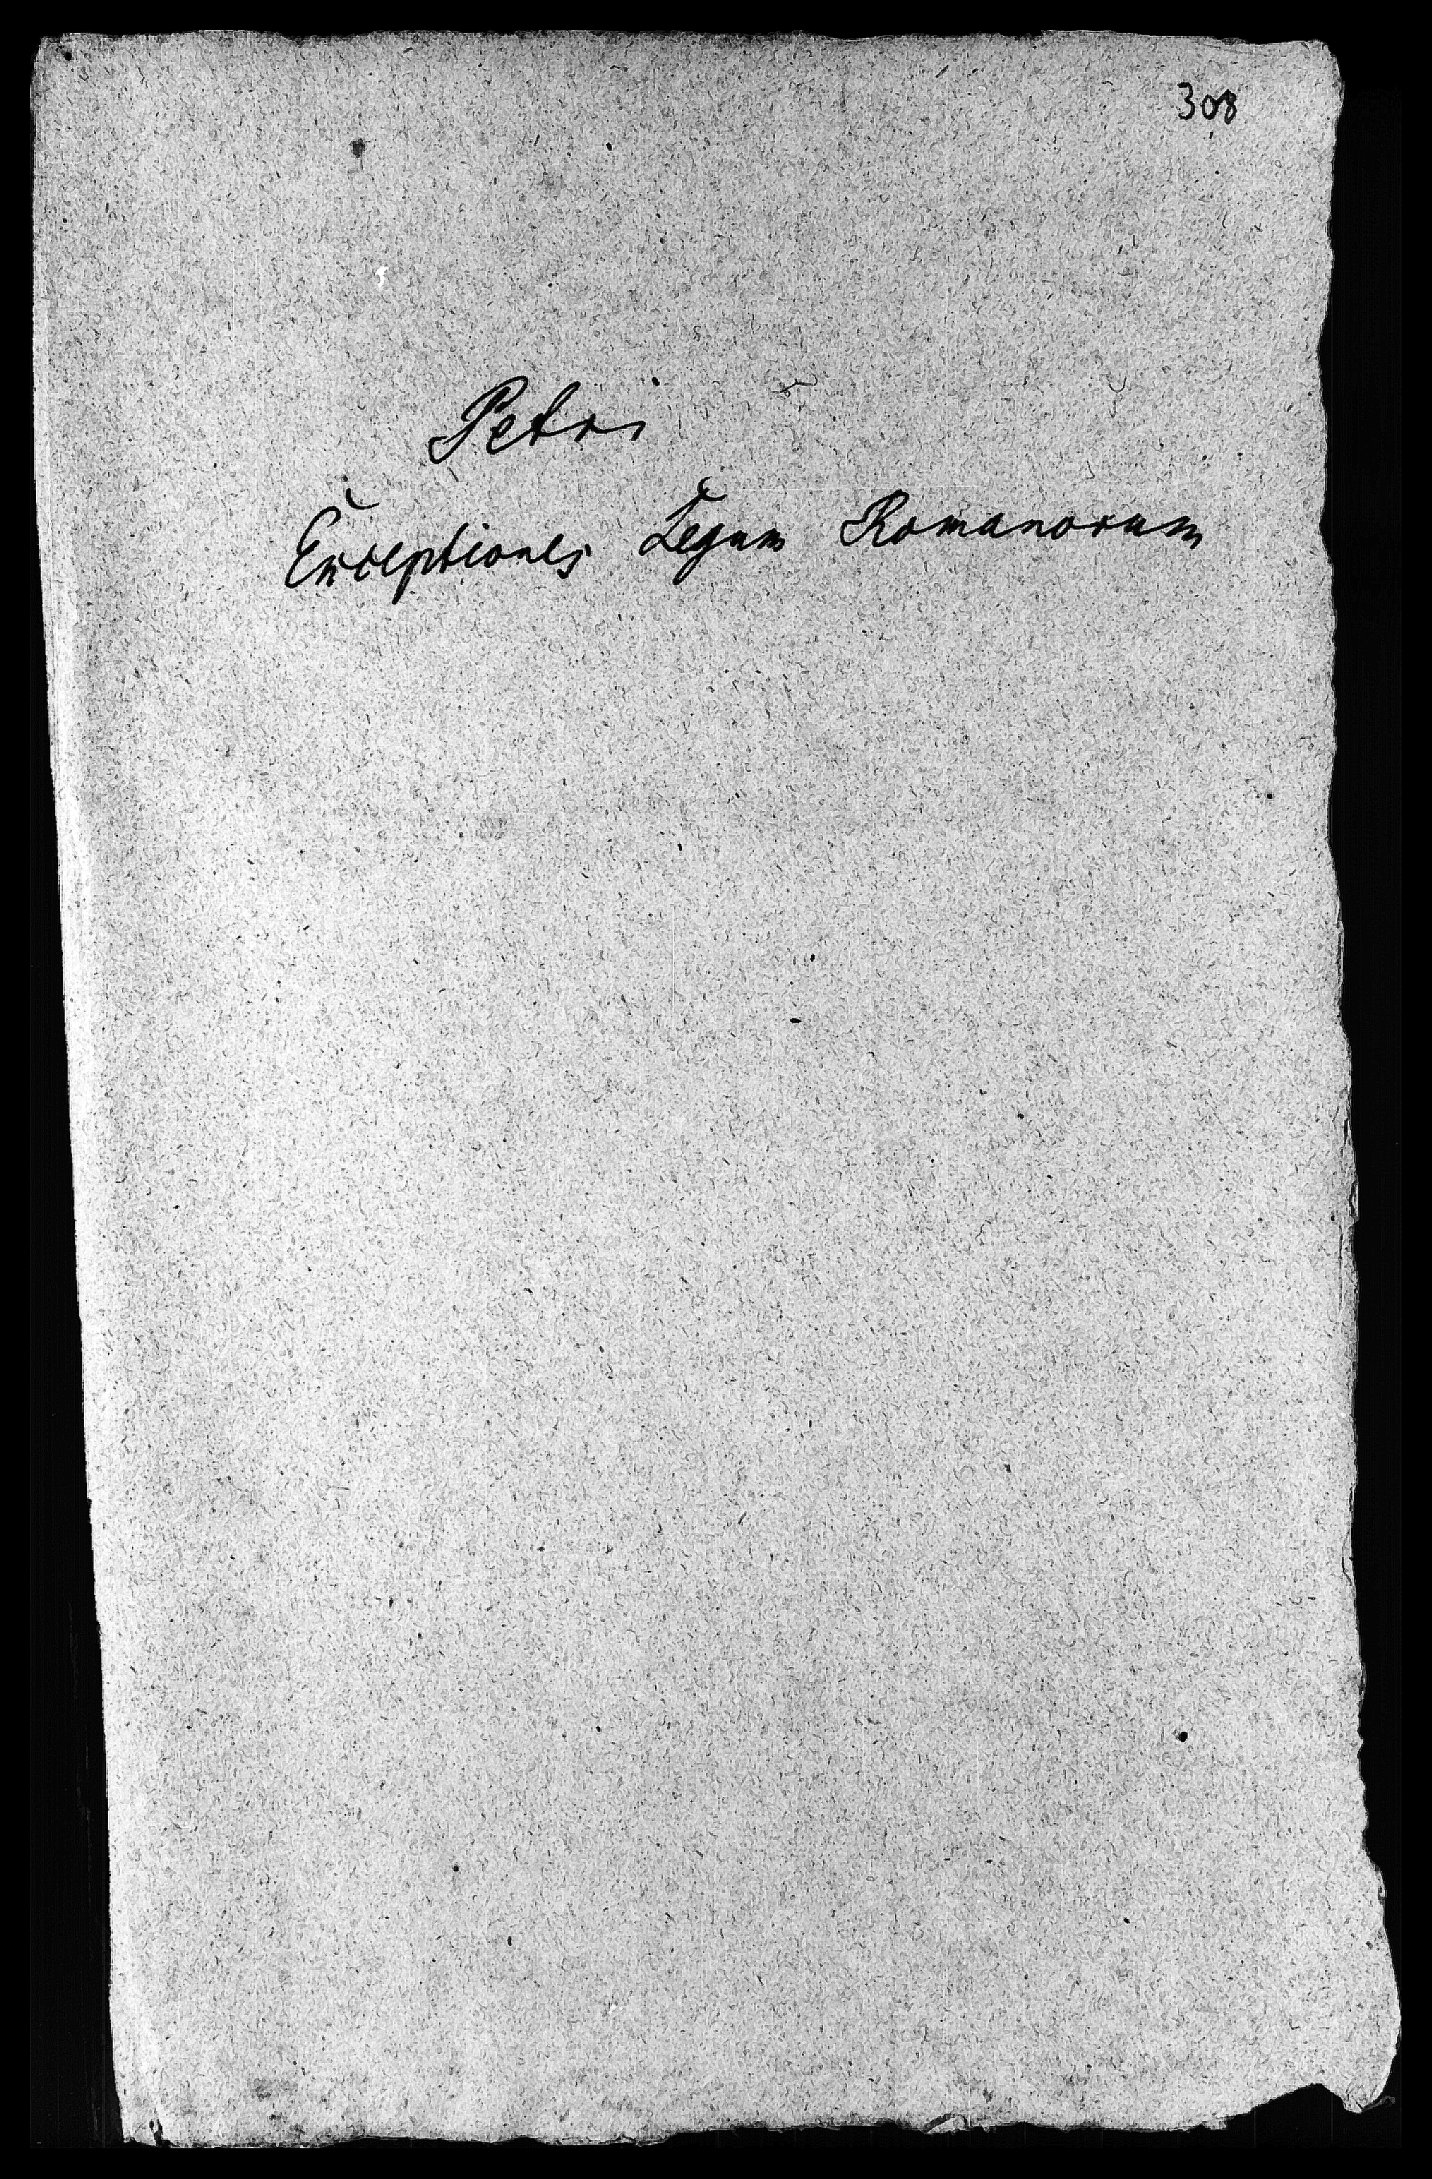 308
Petri
Exceptiones Legum Romanorum